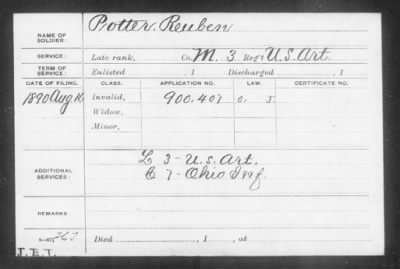 Potter, Reuben
NAME OF SOLDIER:
SERVICE: Late rank, Co. M. 3 Reg't U.S. Art.
TERM OF SERVICE: Enlisted , 1 Discharged , 1
DATE OF FILING. CLASS. APPLICATION NO. LAW. CERTIFICATE NO.
1890 Aug 16 Invalid, 900.407
Widow,
Minor,
L 3 - U.S. Art.
ADDITIONAL SERVICES: 7 - Ohio Inf.
REMARKS:
Died , 1 , at